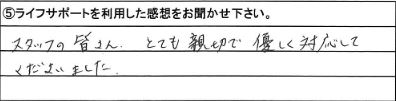 ⑤ライフサポートを利用した感想をお聞かせ下さい。
スタッフの皆さん、とても親切で優しく対応して
くださいました。